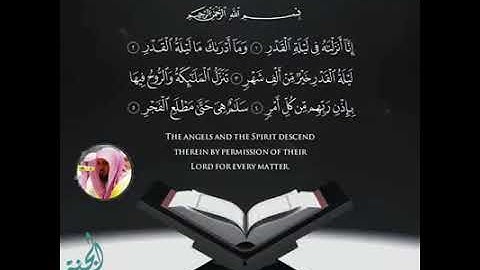 بِسْمِ اللَّهِ الرَّحْمَٰنِ الرَّحِيمِ
إِنَّا أَنزَلْنَاهُ فِي لَيْلَةِ الْقَدْرِ ١ وَمَا أَدْرَاكَ مَا لَيْلَةُ الْقَدْرِ ٢
لَيْلَةُ الْقَدْرِ خَيْرٌ مِّنْ أَلْفِ شَهْرٍ ٣ تَنَزَّلُ الْمَلَائِكَةُ وَالرُّوحُ فِيهَا
بِإِذْنِ رَبِّهِم مِّن كُلِّ أَمْرٍ ٤ سَلَامٌ هِيَ حَتَّىٰ مَطْلَعِ الْفَجْرِ ٥
THE ANGELS AND THE SPIRIT DESCEND
THEREIN BY PERMISSION OF THEIR
LORD FOR EVERY MATTER.